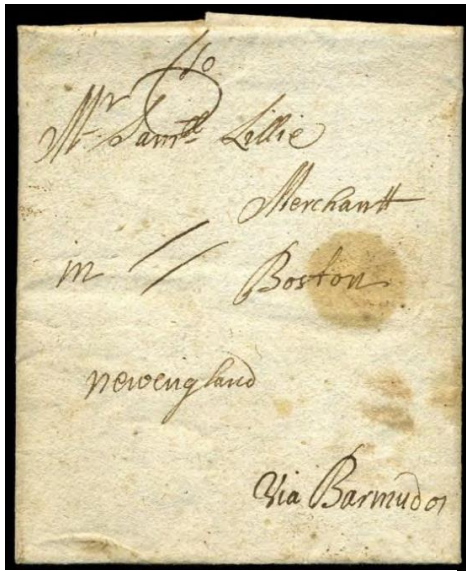 To
Mr Samll Lillie
Merchantt
in Boston
Newengland
Via Barmudos